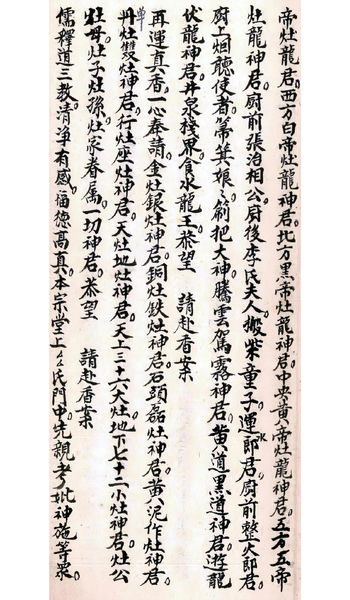 帝灶龍君。西方白帝灶龍神君。北方黑帝灶龍神君。中央黃帝灶龍神君。五方五帝
灶龍神君。厨前張治相公。厨後李氏夫人。搬柴童子。運水郎君。厨前整火郎君。
厨上烟聽使者。箒箕娘々。刷把大神。騰雲駕霧神君。黃道黑道神君。遊龍
伏龍神君。井泉棧界食水龍王。恭望 請赴香案
再運真香。一心奉請。金灶銀灶神君。銅灶鉄灶神君。石頭磊灶神君。黃泥作灶神君。
單丹灶雙灶神君。行灶座灶神君。天灶地灶神君。天上三十六大灶。地下七十二小灶神君。灶公
灶母。灶子灶孫。灶家眷属。一切神君。恭望 請赴香案
儒釋道三教。清净有感。福德高真。本宗堂上厶氏門中先親考妣神施等眾。